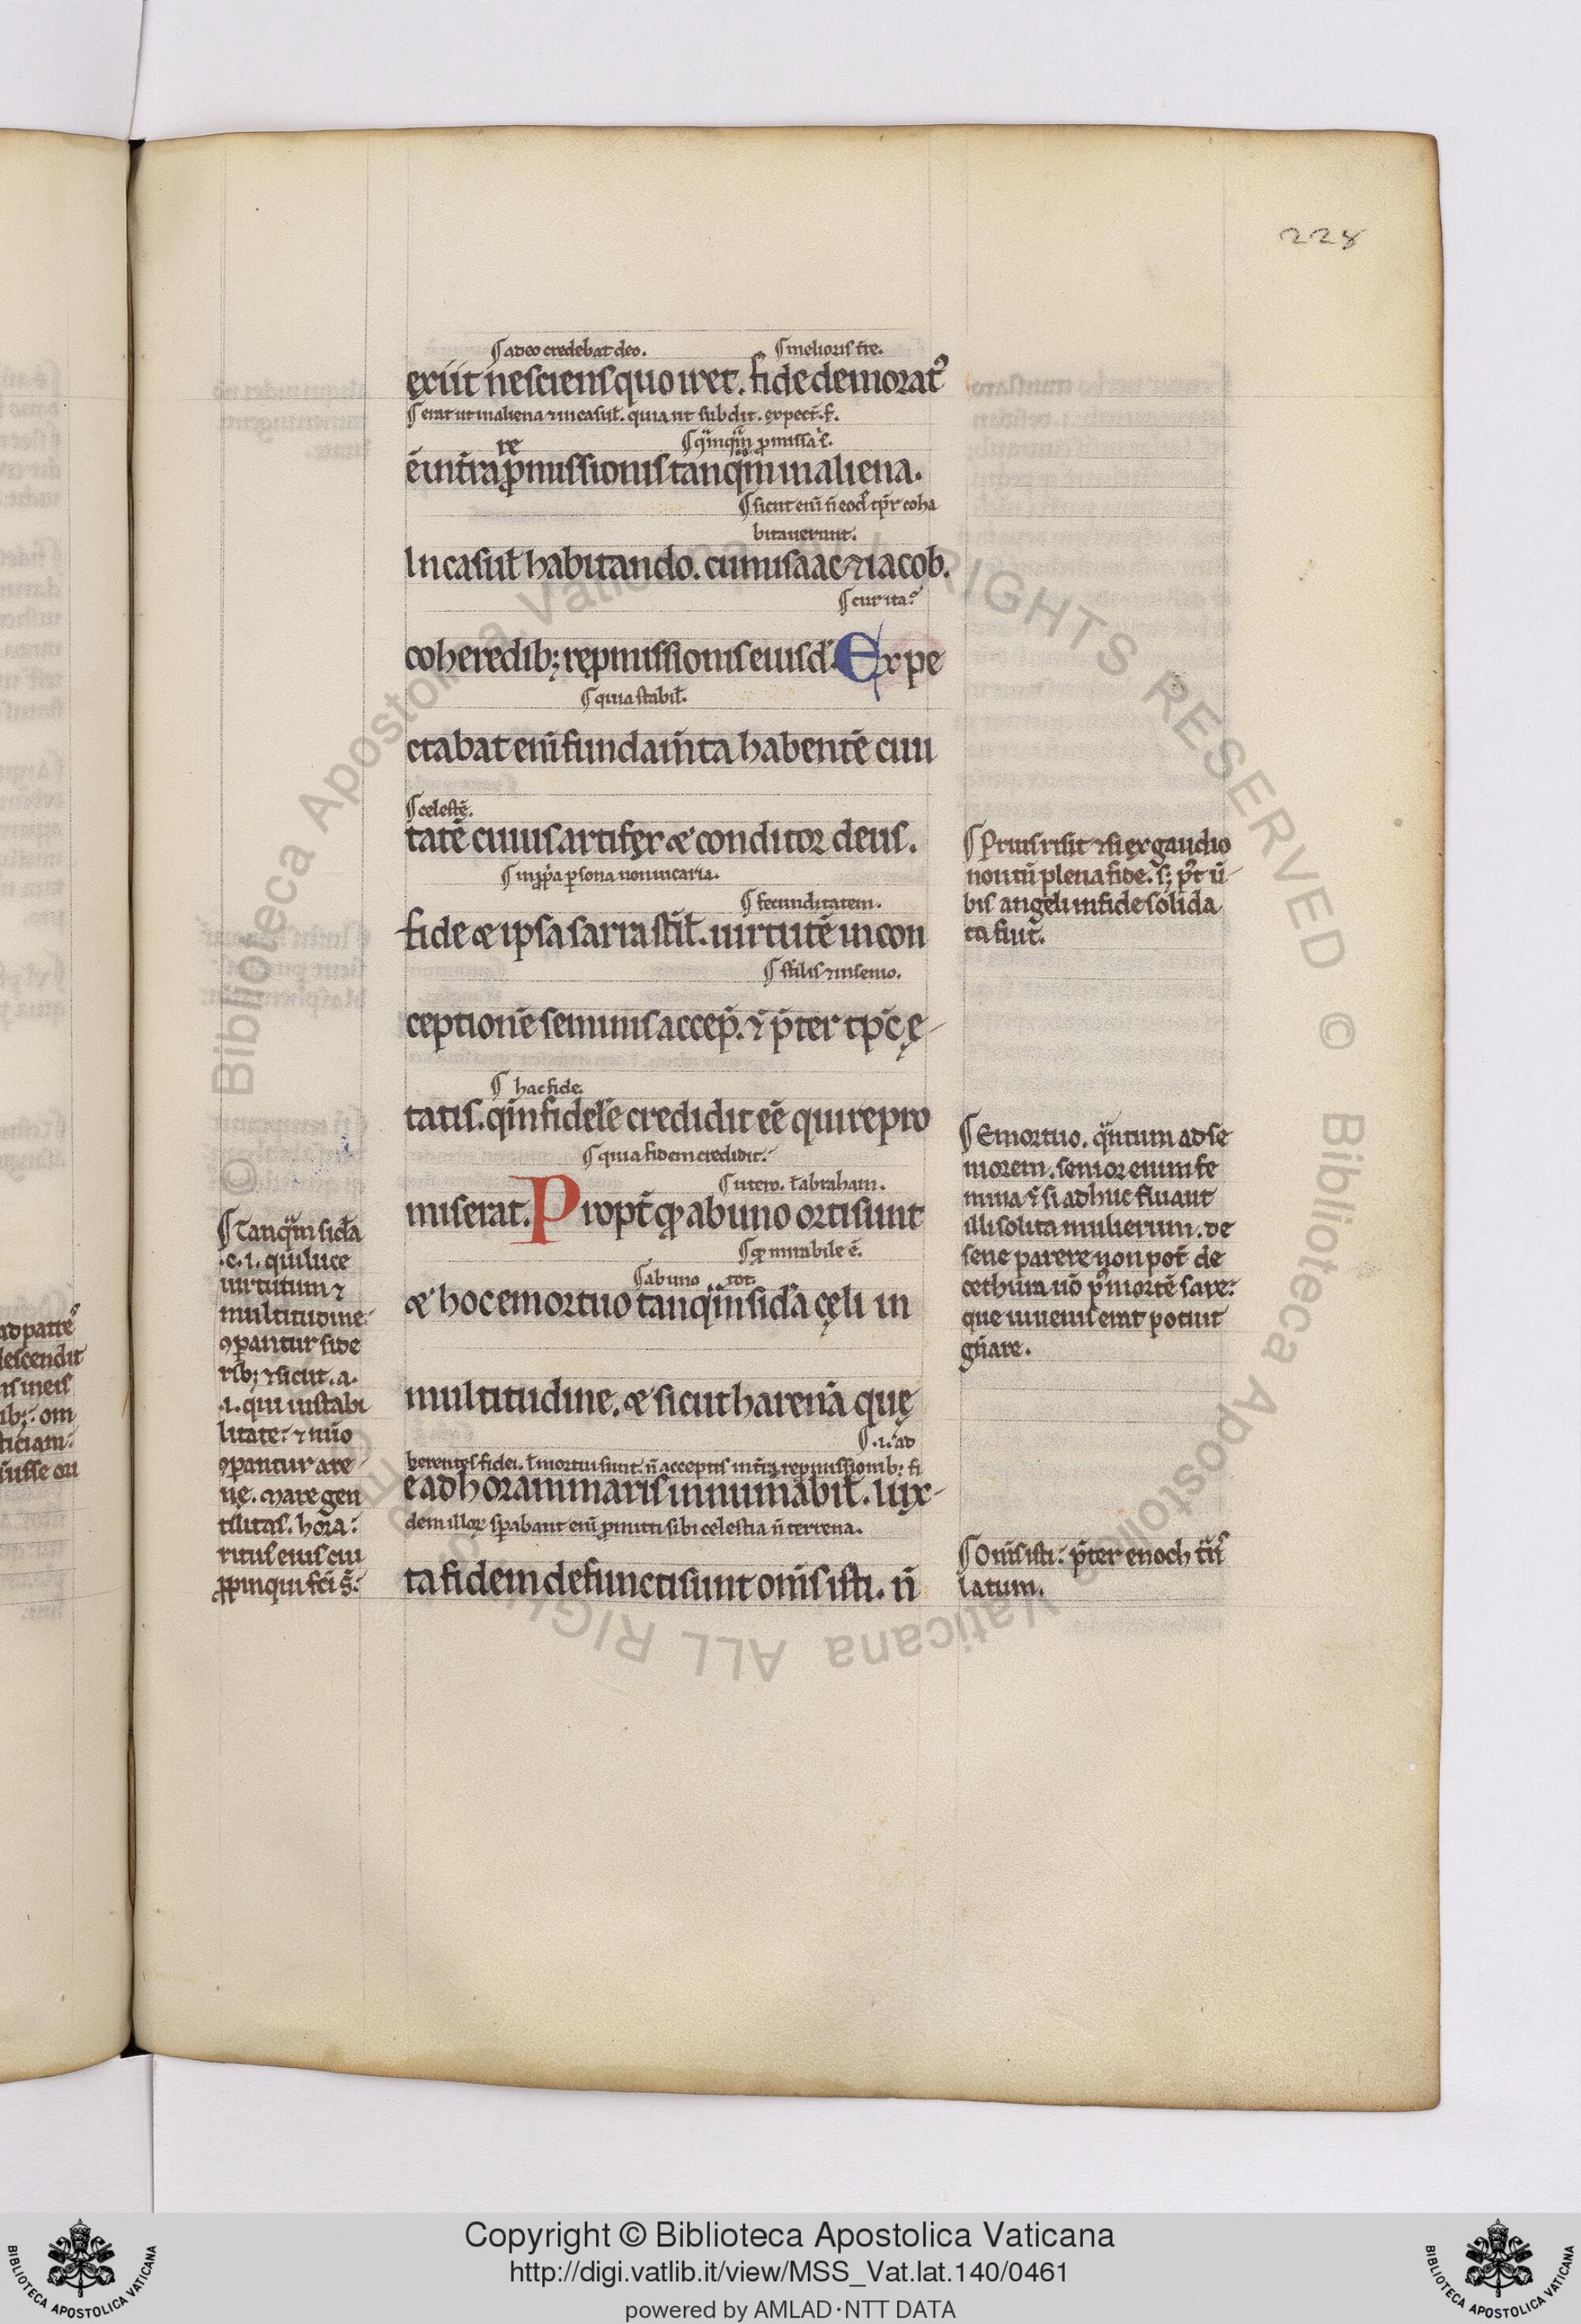 228
¶ adeo credebat deo. ¶ melioris t̄re.
exiit nesciens quo iret. fide demorat᷒
¶ erat ut in aliena ⁊ in casul̄. quia ut subdit. expect̄. f̄.
re ¶ q̄mq̄m p̱missa ē.
ē in t̄ra ꝓmissionis tanq̄m in aliena.
¶ sicut eni n̄ eod̄ tp̄r coha
bitauerunt.
In casul̄ habitando. cum isaac ⁊ iacob.
¶ cur ita?
coheredib; repmissionis eiusd̄. Expe
¶ quia stabil̄.
ctabat enī fundam̄ta habentē ciui
¶ celestē.
tatē cuius artifex & conditor deus.
¶ in ꝓp̄a ꝑsona non uicaria.
¶ fecunditatem.
fide & ipsa sarra st̄il̄. uirtutē in con
¶ st̄ilis ⁊ in senio.
ceptionē seminis accep̄. ⁊ p̄ter tp̄c ę-
¶ hac fide.
tatis. q̄m fidelē credidit eē qui repro
¶ quia fidem credidit.
¶ utero. ł abraham.
miserat. Propt̄ qꝫ ab uno orti sunt
¶ qꝫ mirabile ē.
¶ ab uno tot.
& hoc emortuo tanq̄m sid̄a cęli in
multitudine. & sicut harenā quę
¶ .i. ad
herentes fidei. ł mortui sunt. n̄ acceptis int̄ra repmissionib; fi
e ad horam maris innum̄abil̄. iux-
dem illoꝝ sp̄abant enī ꝓmitti sibi celestia n̄ terrena.
ta fidem defuncti sunt om̄s isti. n̄
¶ Tanq̄m sid̄a
.c. i. qui luce
uirtutum ⁊
multitudine
ꝯparantur side
rib; ⁊ sicut. a.
.i. qui instabi
litate: ⁊ nūo
ꝯparantur are
ne. Mare gen
tilitas. hora:
ritus eius cui
ꝓpinqui fc̄i s̄:
¶ Prius risit ⁊ si ex gaudio
non tū plena fide. s; p̄t ū
bis angeli in fide solida
ta fiut̄.
¶ Emortuo. q̄ntum ad se
niorem. senior enim fe
mina ⁊ si adhuc fluant
illi solita mulierum. de
sene parere non pot̄ de
cethura ūo p᷒ mortē sare:
que iuuenis erat potuit
gn̄are.
¶ Om̄s isti: p̄ter enoch t̄ns
latum.
ad patrē
descendit
ib;: om
ticiam:
Copyright © Biblioteca Apostolica Vaticana
http://digi.vatlib.it/view/MSS_Vat.lat.140/0461
powered by AMLAD·NTT DATA
BIBLIOTECA APOSTOLICA VATICANA
BIBLIOTECA APOSTOLICA VATICANA
© Biblioteca Apostolica Vaticana ALL RIGHTS RESERVED © Biblioteca Apostolica Vaticana ALL RIGHTS RESERVED